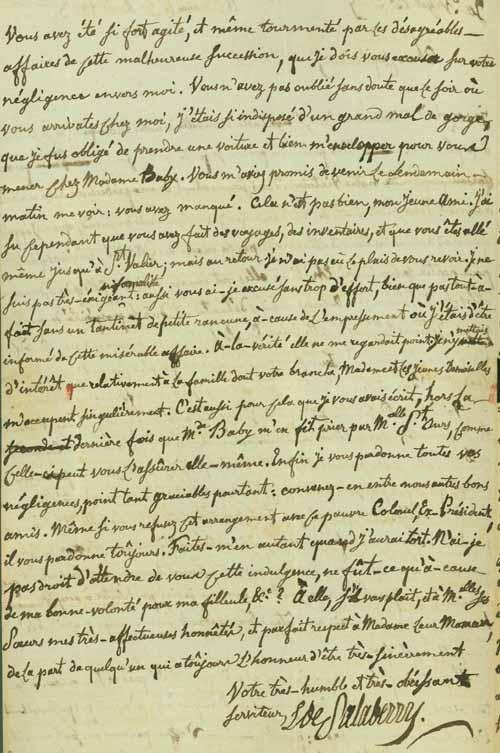 Vous avez été si fort agité, et même tourmenté par les désagréables
affaires de cette malheureuse succession, que je dois vous excuser sur votre
négligence envers moi. Vous n'avez pas oublié sans doute que le soir où
vous arrivates chez moi, j'étais si indisposé d'un grand mal de gorge,
que je fus obligé de prendre une voiture et bien m'envelopper pour vous
mener chez Madame Baby. Vous m'aviez promis de venir le lendemain
matin me voir: vous avez manqué. Cela n'est pas bien, mon jeune Ami. J'ai
su cependant que vous avez fait des voyages, des inventaires, et que vous êtes allé
même jusqu'à St. Valier; mais au retour je n'ai pas eu le plaisir de vous revoir. Je ne
suis pas très-exigeant: aussi vous ai-je excusé sans trop d'effort, bien que pas tout-à-
fait sans un tantinet de petite rancune, à-cause de l'empressement où j'étais d'être
informé de cette misérable affaire. A-la-vérité elle ne me regardoit point; je n'y mettois
d'intérêt que relativement à la famille dont votre branche, Madame et les jeunes Demoiselles
m'occupent singulièrement. C'est aussi pour cela que je vous avois écrit, hors la
dernière fois que Mde. Baby m'en fit prier par Mlle St. Ours, comme
celle-ci peut vous l'assurer elle-même. Enfin je vous pardonne toutes vos
négligences, point tant graciables pourtant: convenez-en entre nous autres bons
amis. Même si vous refusez cet arrangement avec ce pauvre Colonel, Ex-Président,
il vous pardonne toûjours. Faites-m'en autant quand j'aurai tort. N'ai-je
pas droit d'attendre de vous cette indulgence, ne fût-ce qu'à-cause
de ma bonne-volonté pour ma filleule, &c? À elle, s'il vous plait, et à Mlles ses
Sœurs mes très-affectueuses honnêtetés, et parfait respect à Madame leur Maman,
de la part de quelqu'un qui a toûjours l'honneur d'être très-sincèrement
Votre très-humble et très-obéissant
serviteur, L de Salaberry.